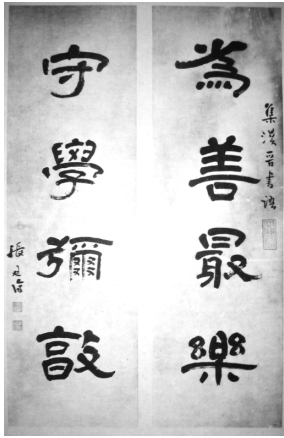 為善最樂
集漢晉書語
守學彌敦
張